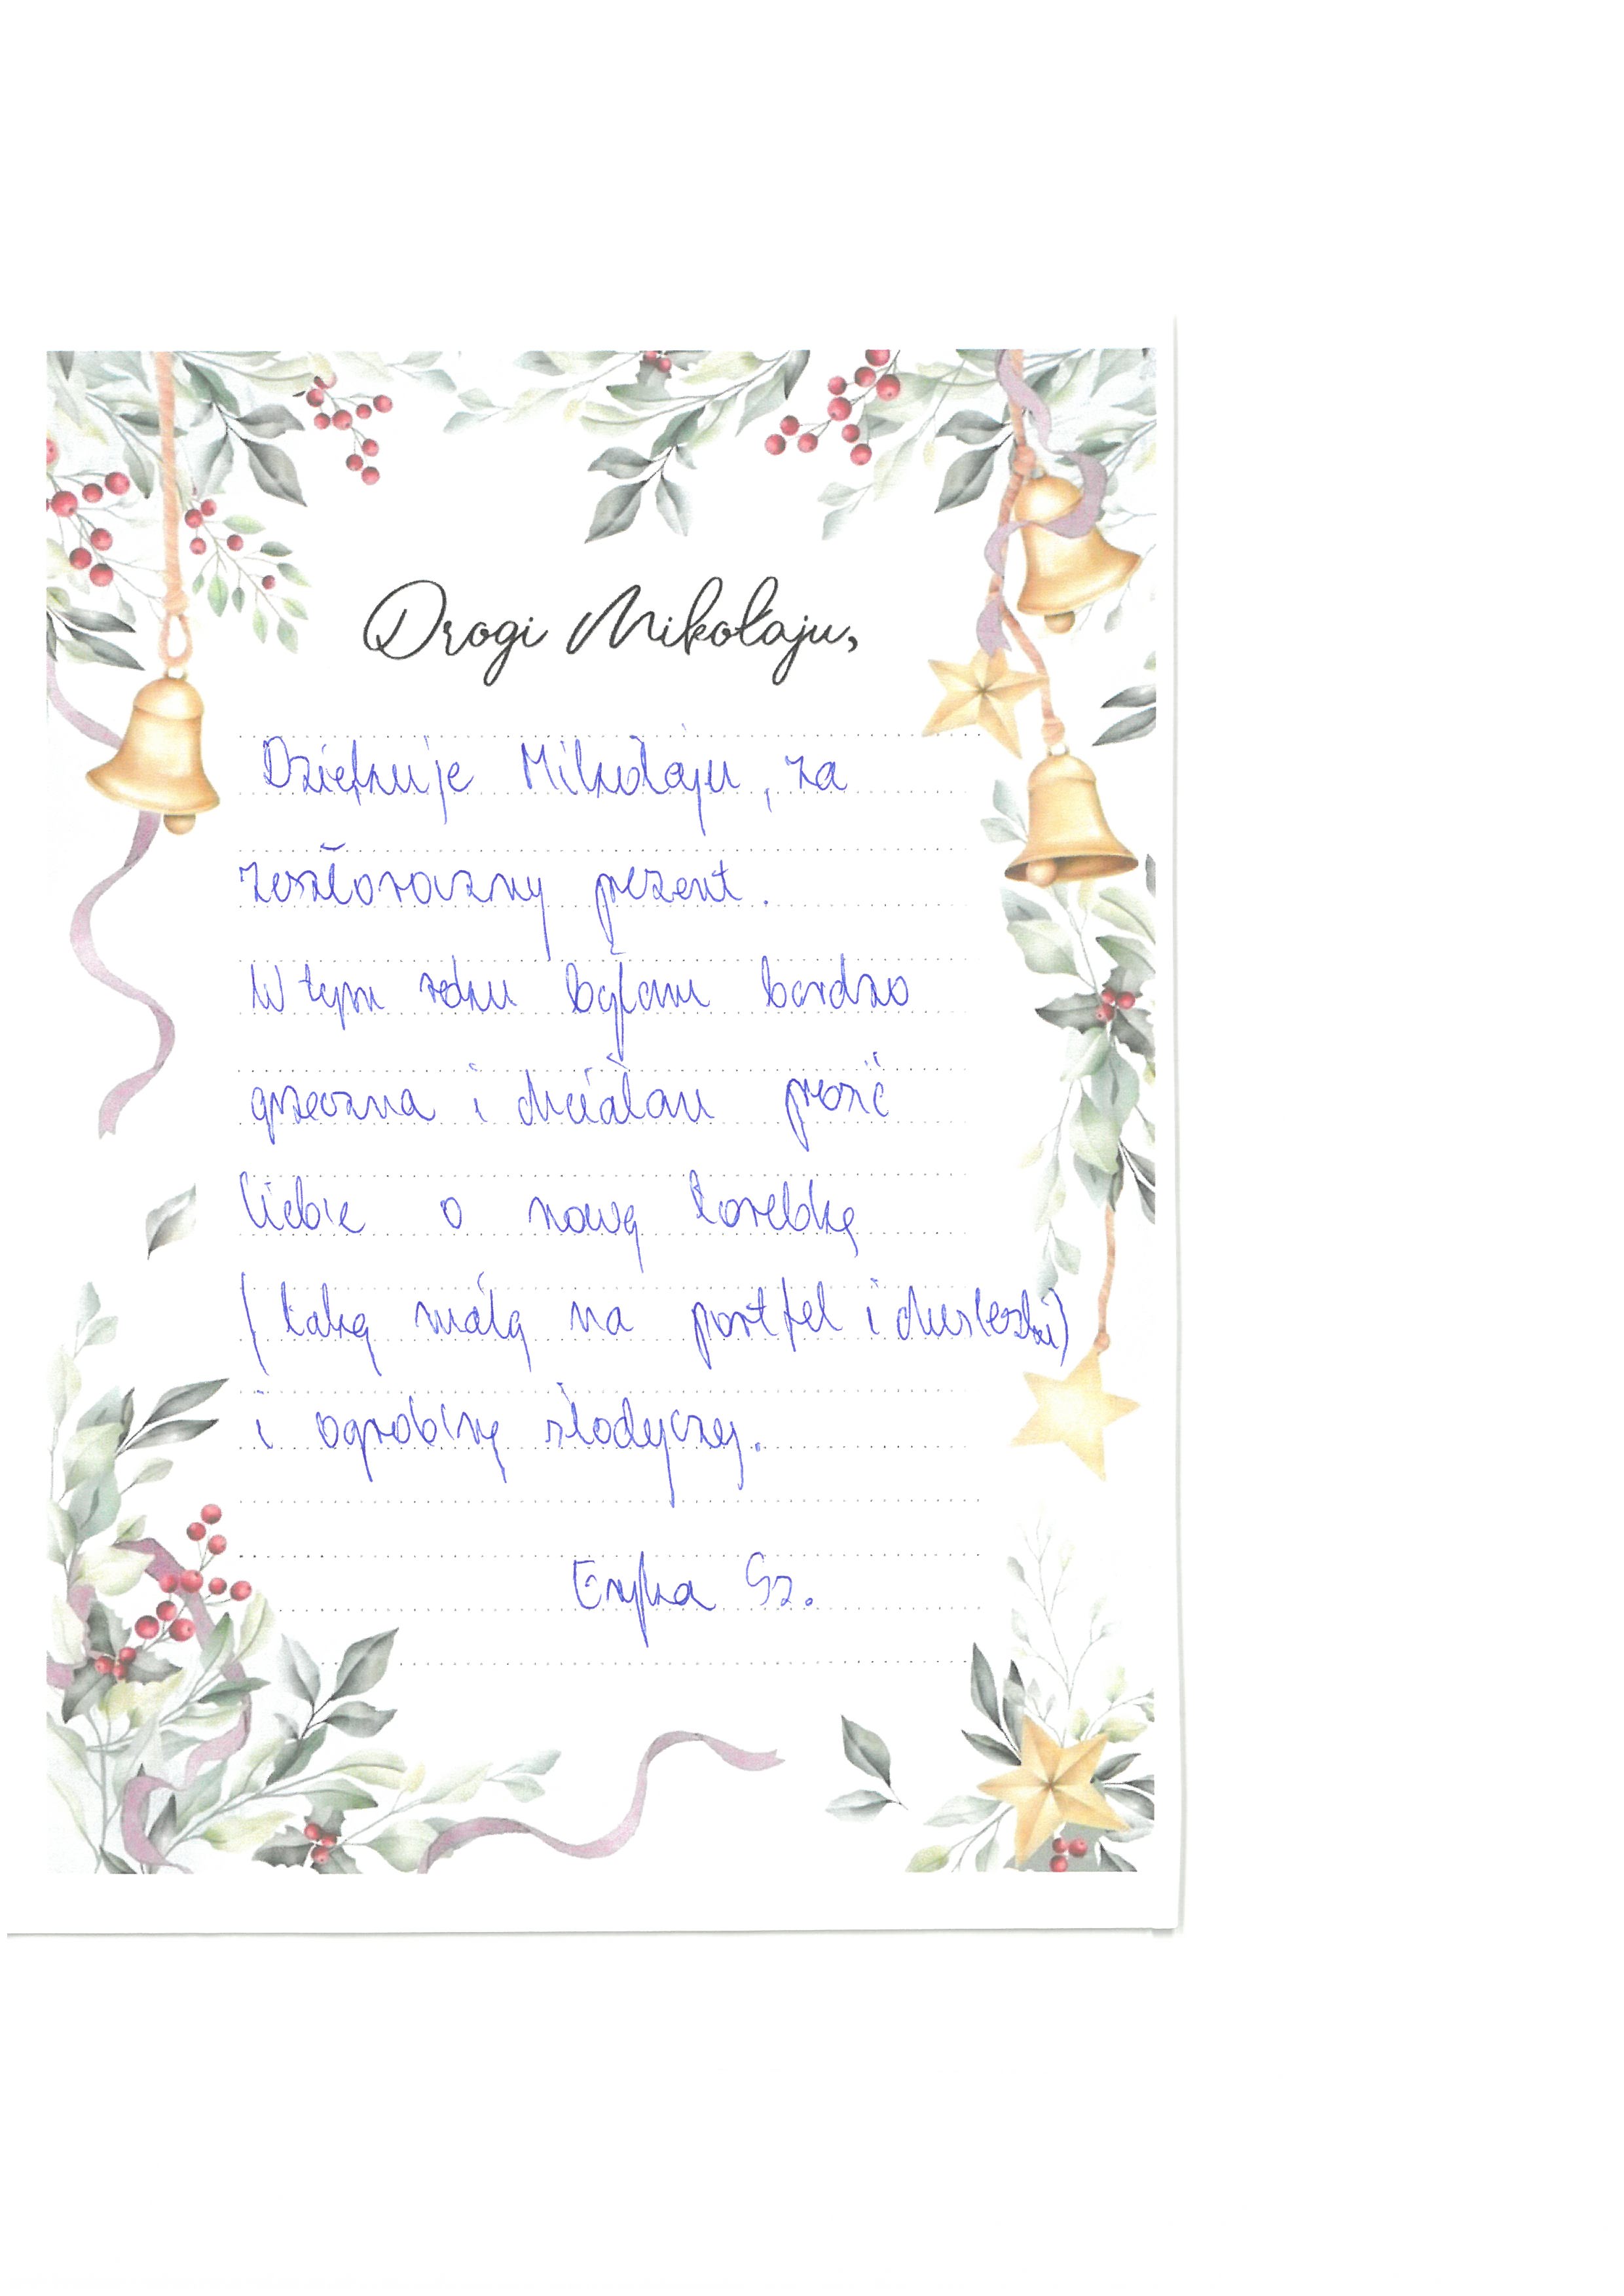 Drogi Mikołaju,
Dziękuje Mikołaju, za
zeszłoroczny prezent.
W tym roku byłam bardzo
grzeczna i chciałam prosić
Ciebie o nową torebkę
(taką małą na portfel i chusteczki)
i ogrobinę słodyczy.
Eryka Sz.